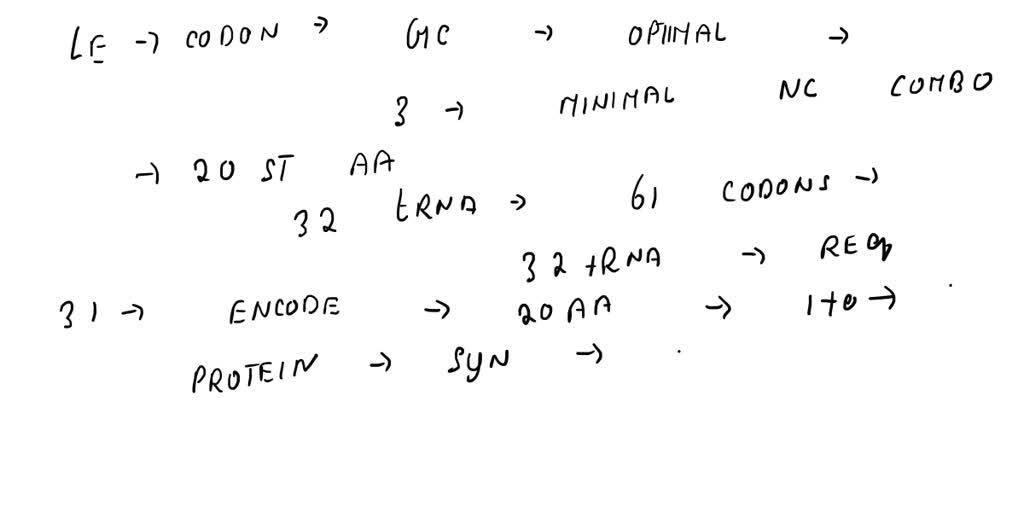 LE → CODON → GC → OPTIMAL →
3 → MINIMAL NC COMBO
→ 20 ST AA
32 tRNA → 61 CODONS →
32 tRNA → REQ
31 → ENCODE → 20 AA → 1 to →
PROTEIN → SYN →